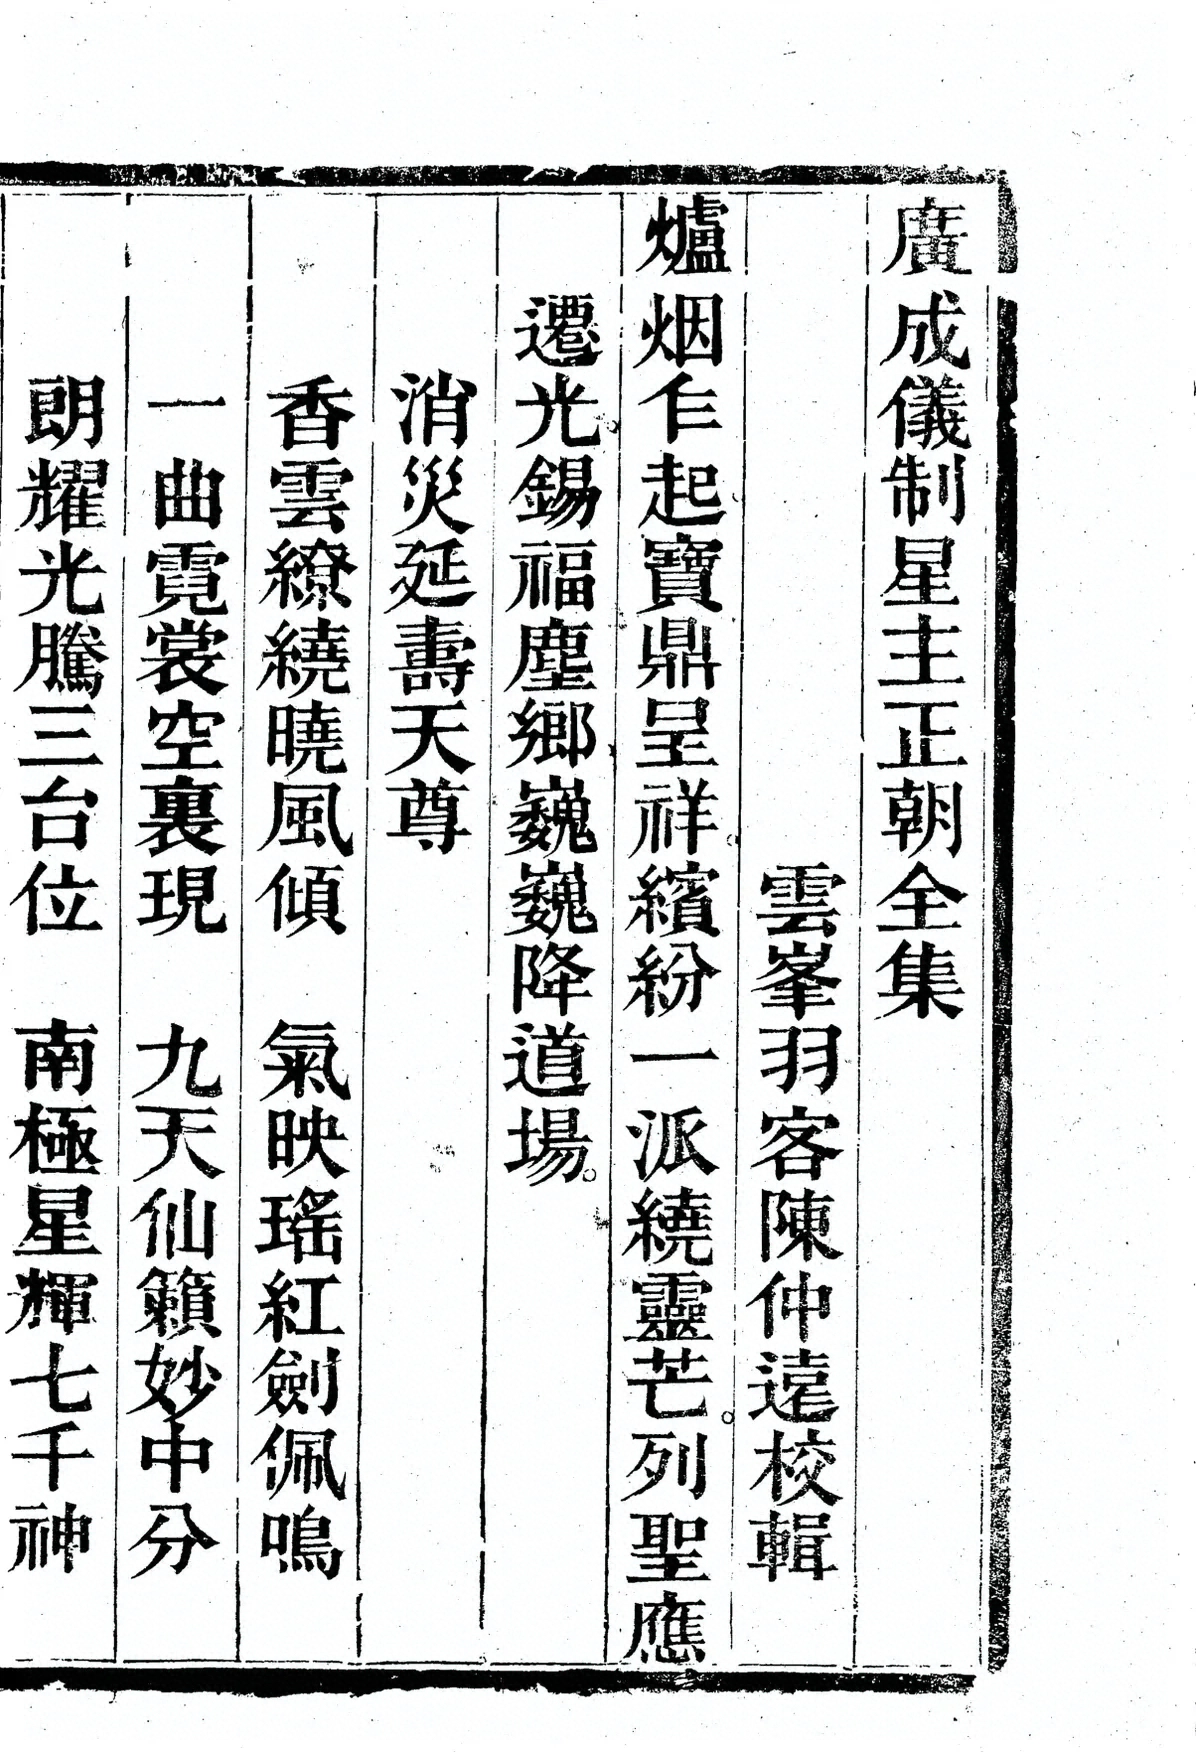 廣成儀制星主正朝全集
雲峯羽客陳仲遠校輯
爐烟乍起寶鼎呈祥繽紛一派繞靈芒。列聖應
遷光。錫福塵鄉巍巍降道場。
消災延壽天尊
香雲繚繞曉風傾　氣映瑤紅劍佩鳴
一曲霓裳空裏現　九天仙籟妙中分
朗耀光騰三台位　南極星輝七千神